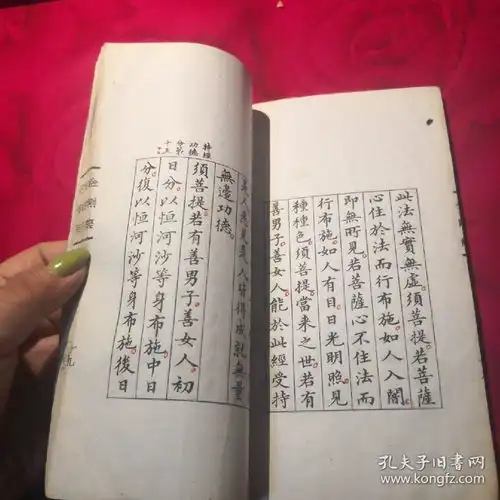 此法無實無虛。須菩提。若菩薩
心住於法而行布施。如人入闇。
即無所見。若菩薩心不住法而
行布施。如人有目。日光明照。見
種種色。須菩提。當來之世。若有
善男子。善女人。能於此經受持
是人悉見是人皆得成就無量
無邊功德。
持經
功德
分第
十五
須菩提。若有善男子。善女人。初
日分。以恒河沙等身布施。中日
分。復以恒河沙等身布施。後日
孔夫子旧书网
www.kongfz.com